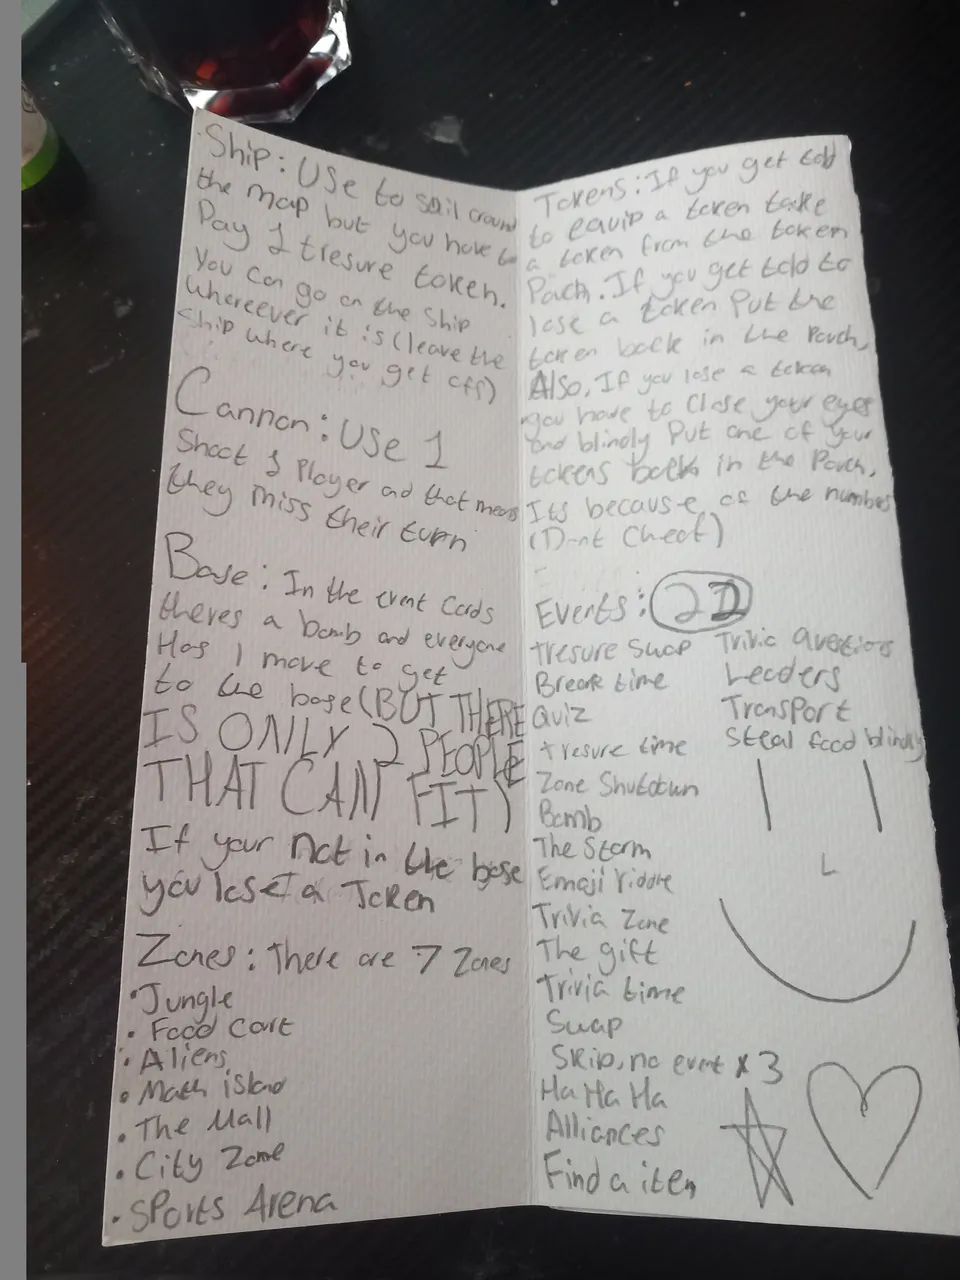 Ship: Use to sail around
the map but you have to
Pay 1 tresure token.
You can go on the Ship
whereever it is (leave the
ship where you get off)
Cannon: Use 1
Shoot 1 Player and that means
they miss their turn
Base: In the event Cards
theres a bomb and everyone
Has 1 move to get
to the base (BUT THERE
IS ONLY 2 PEOPLE
THAT CAN FIT)
If your not in the base
you lose a Token
Zones: There are 7 Zones
• Jungle
• Food Cart
• Aliens
• Math island
• The Mall
• City Zone
• Sports Arena
Tokens: If you get told
to equip a token take
a token from the token
Pouch. If you get told to
lose a token Put the
token back in the Pouch,
Also, If you lose a token
you have to close your eyes
and blindly Put one of your
tokens back in the Pouch,
Its because of the numbers
(Dont Cheat)
Events:
Tresure Swap
Break time
Quiz
tresure time
Zone Shutdown
Bomb
The Storm
Emoji riddle
Trivia Zone
The gift
Trivia time
Swap
Skip, no event x 3
Ha Ha Ha
Alliances
Find a item
Trivia Questions
Leaders
Transport
Steal food blindly